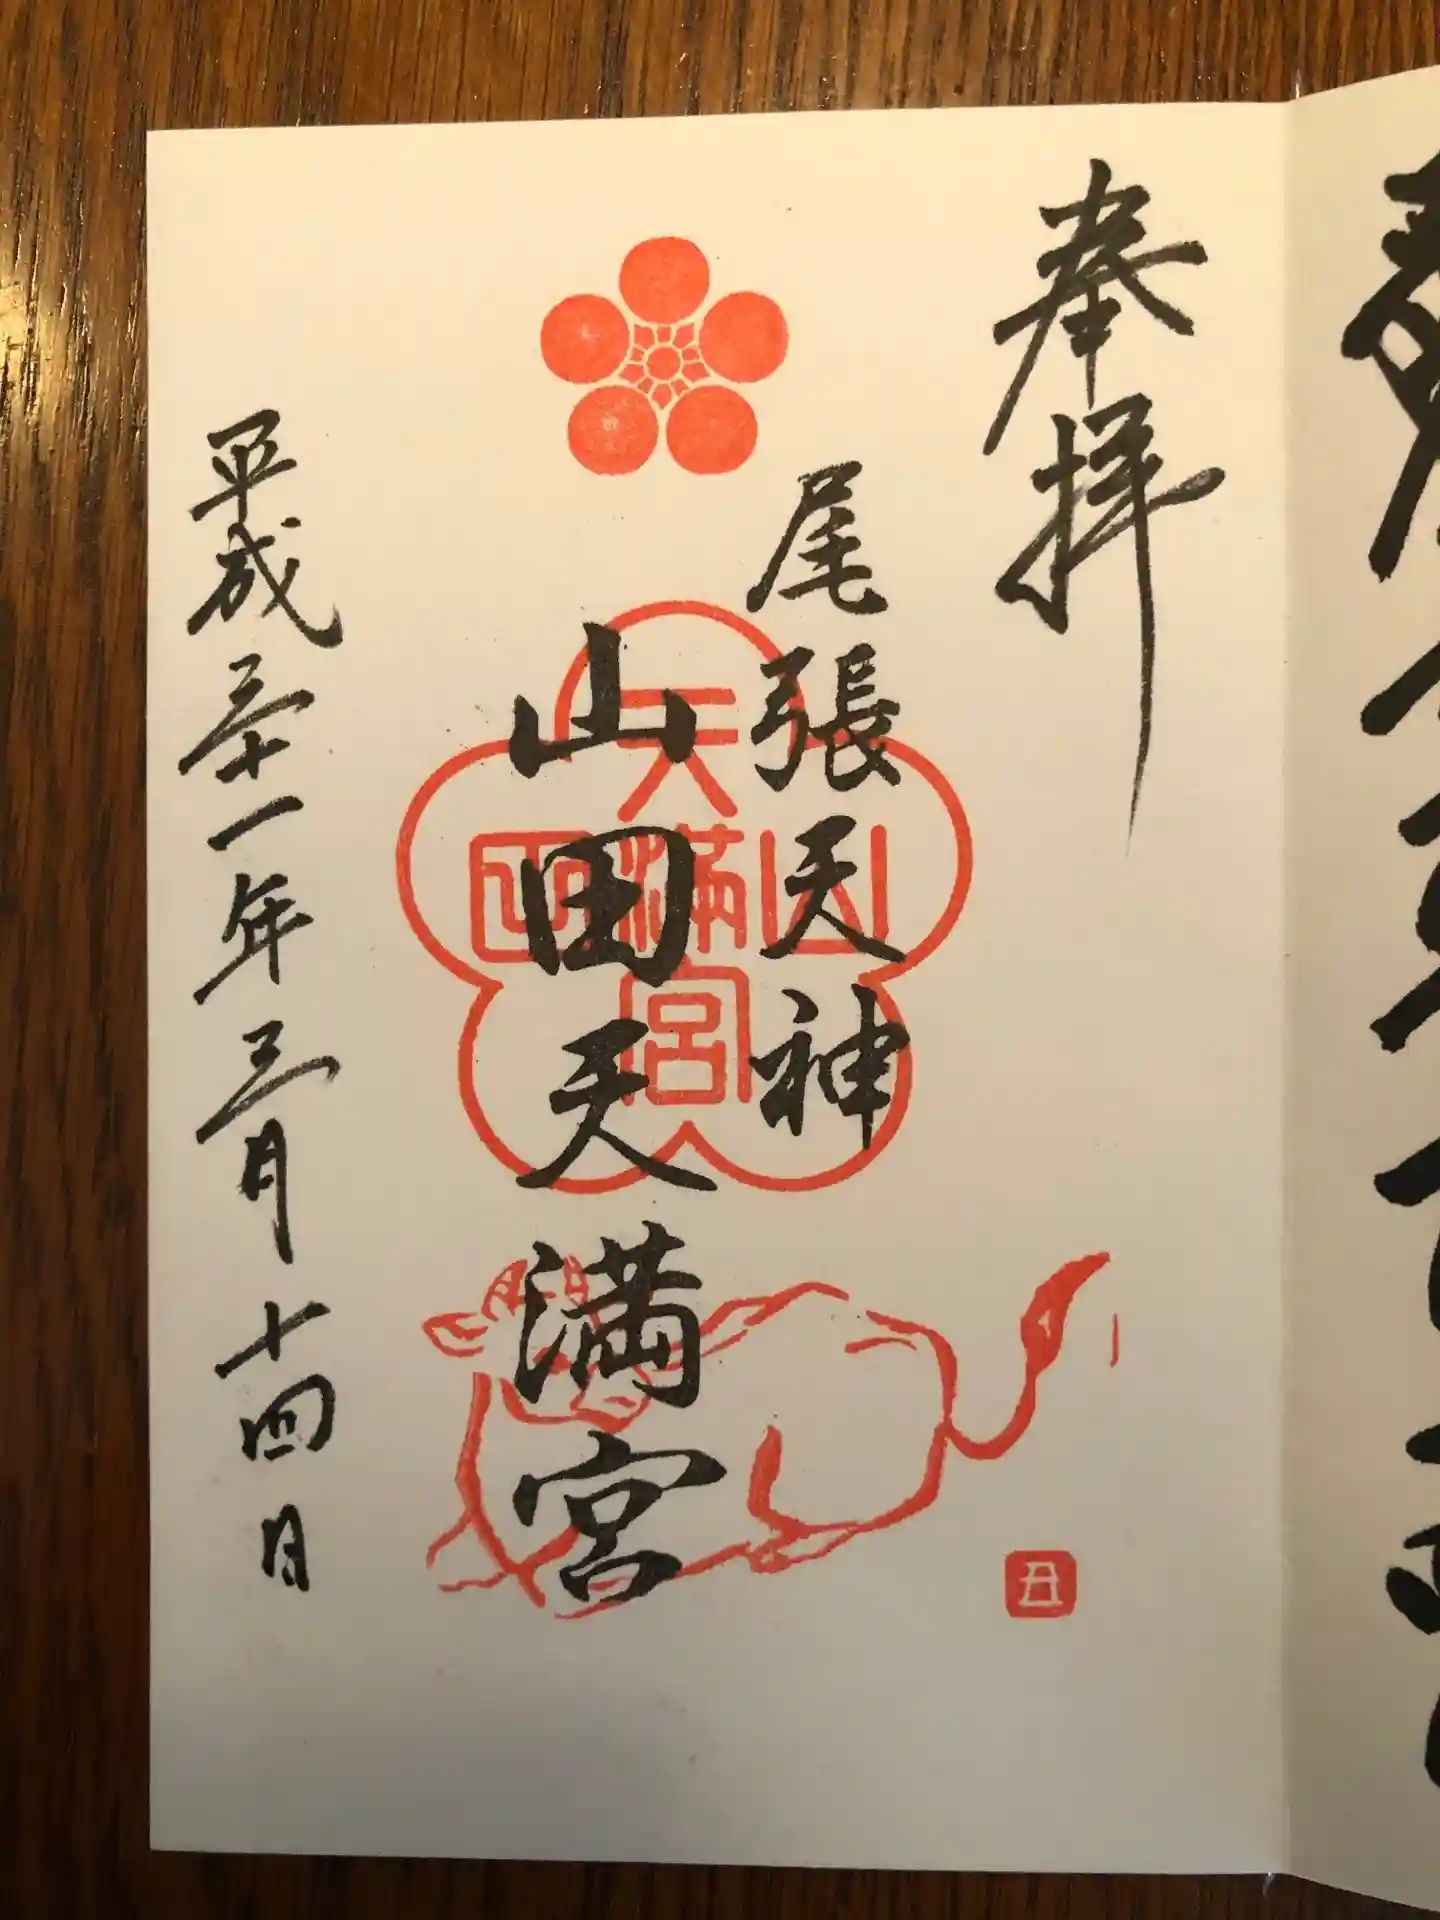 奉拝
尾張天神
山田天満宮
平成三十一年三月十四日
天満宮
山
田
丑